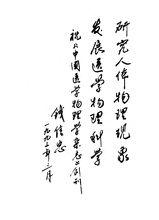 研究人体物理现象
发展医学物理科学
祝《中国医学物理学杂志》创刊
钱信忠
一九九二年三月